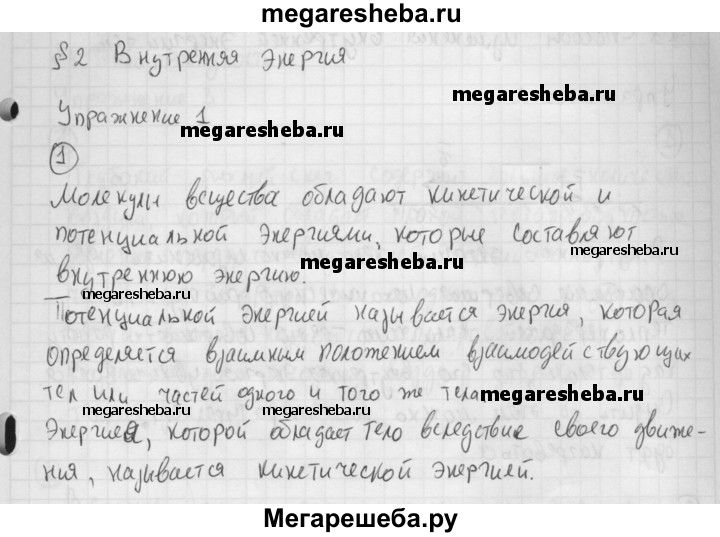 megaresheba.ru
§2 Внутренняя энергия
megaresheba.ru
Упражнение 1
megaresheba.ru
1
Молекулы вещества обладают кинетической и
потенциальной энергиями, которые составляют
megaresheba.ru
внутреннюю энергию.
megaresheba.ru
megaresheba.ru
Потенциальной энергией называется энергия, которая
определяется взаимным положением взаимодействующих
тел или частей одного и того же тела.
megaresheba.ru
megaresheba.ru
megaresheba.ru
Энергией, которой обладает тело вследствие своего движе-
ния, называется кинетической энергией.
Мегарешеба.ру